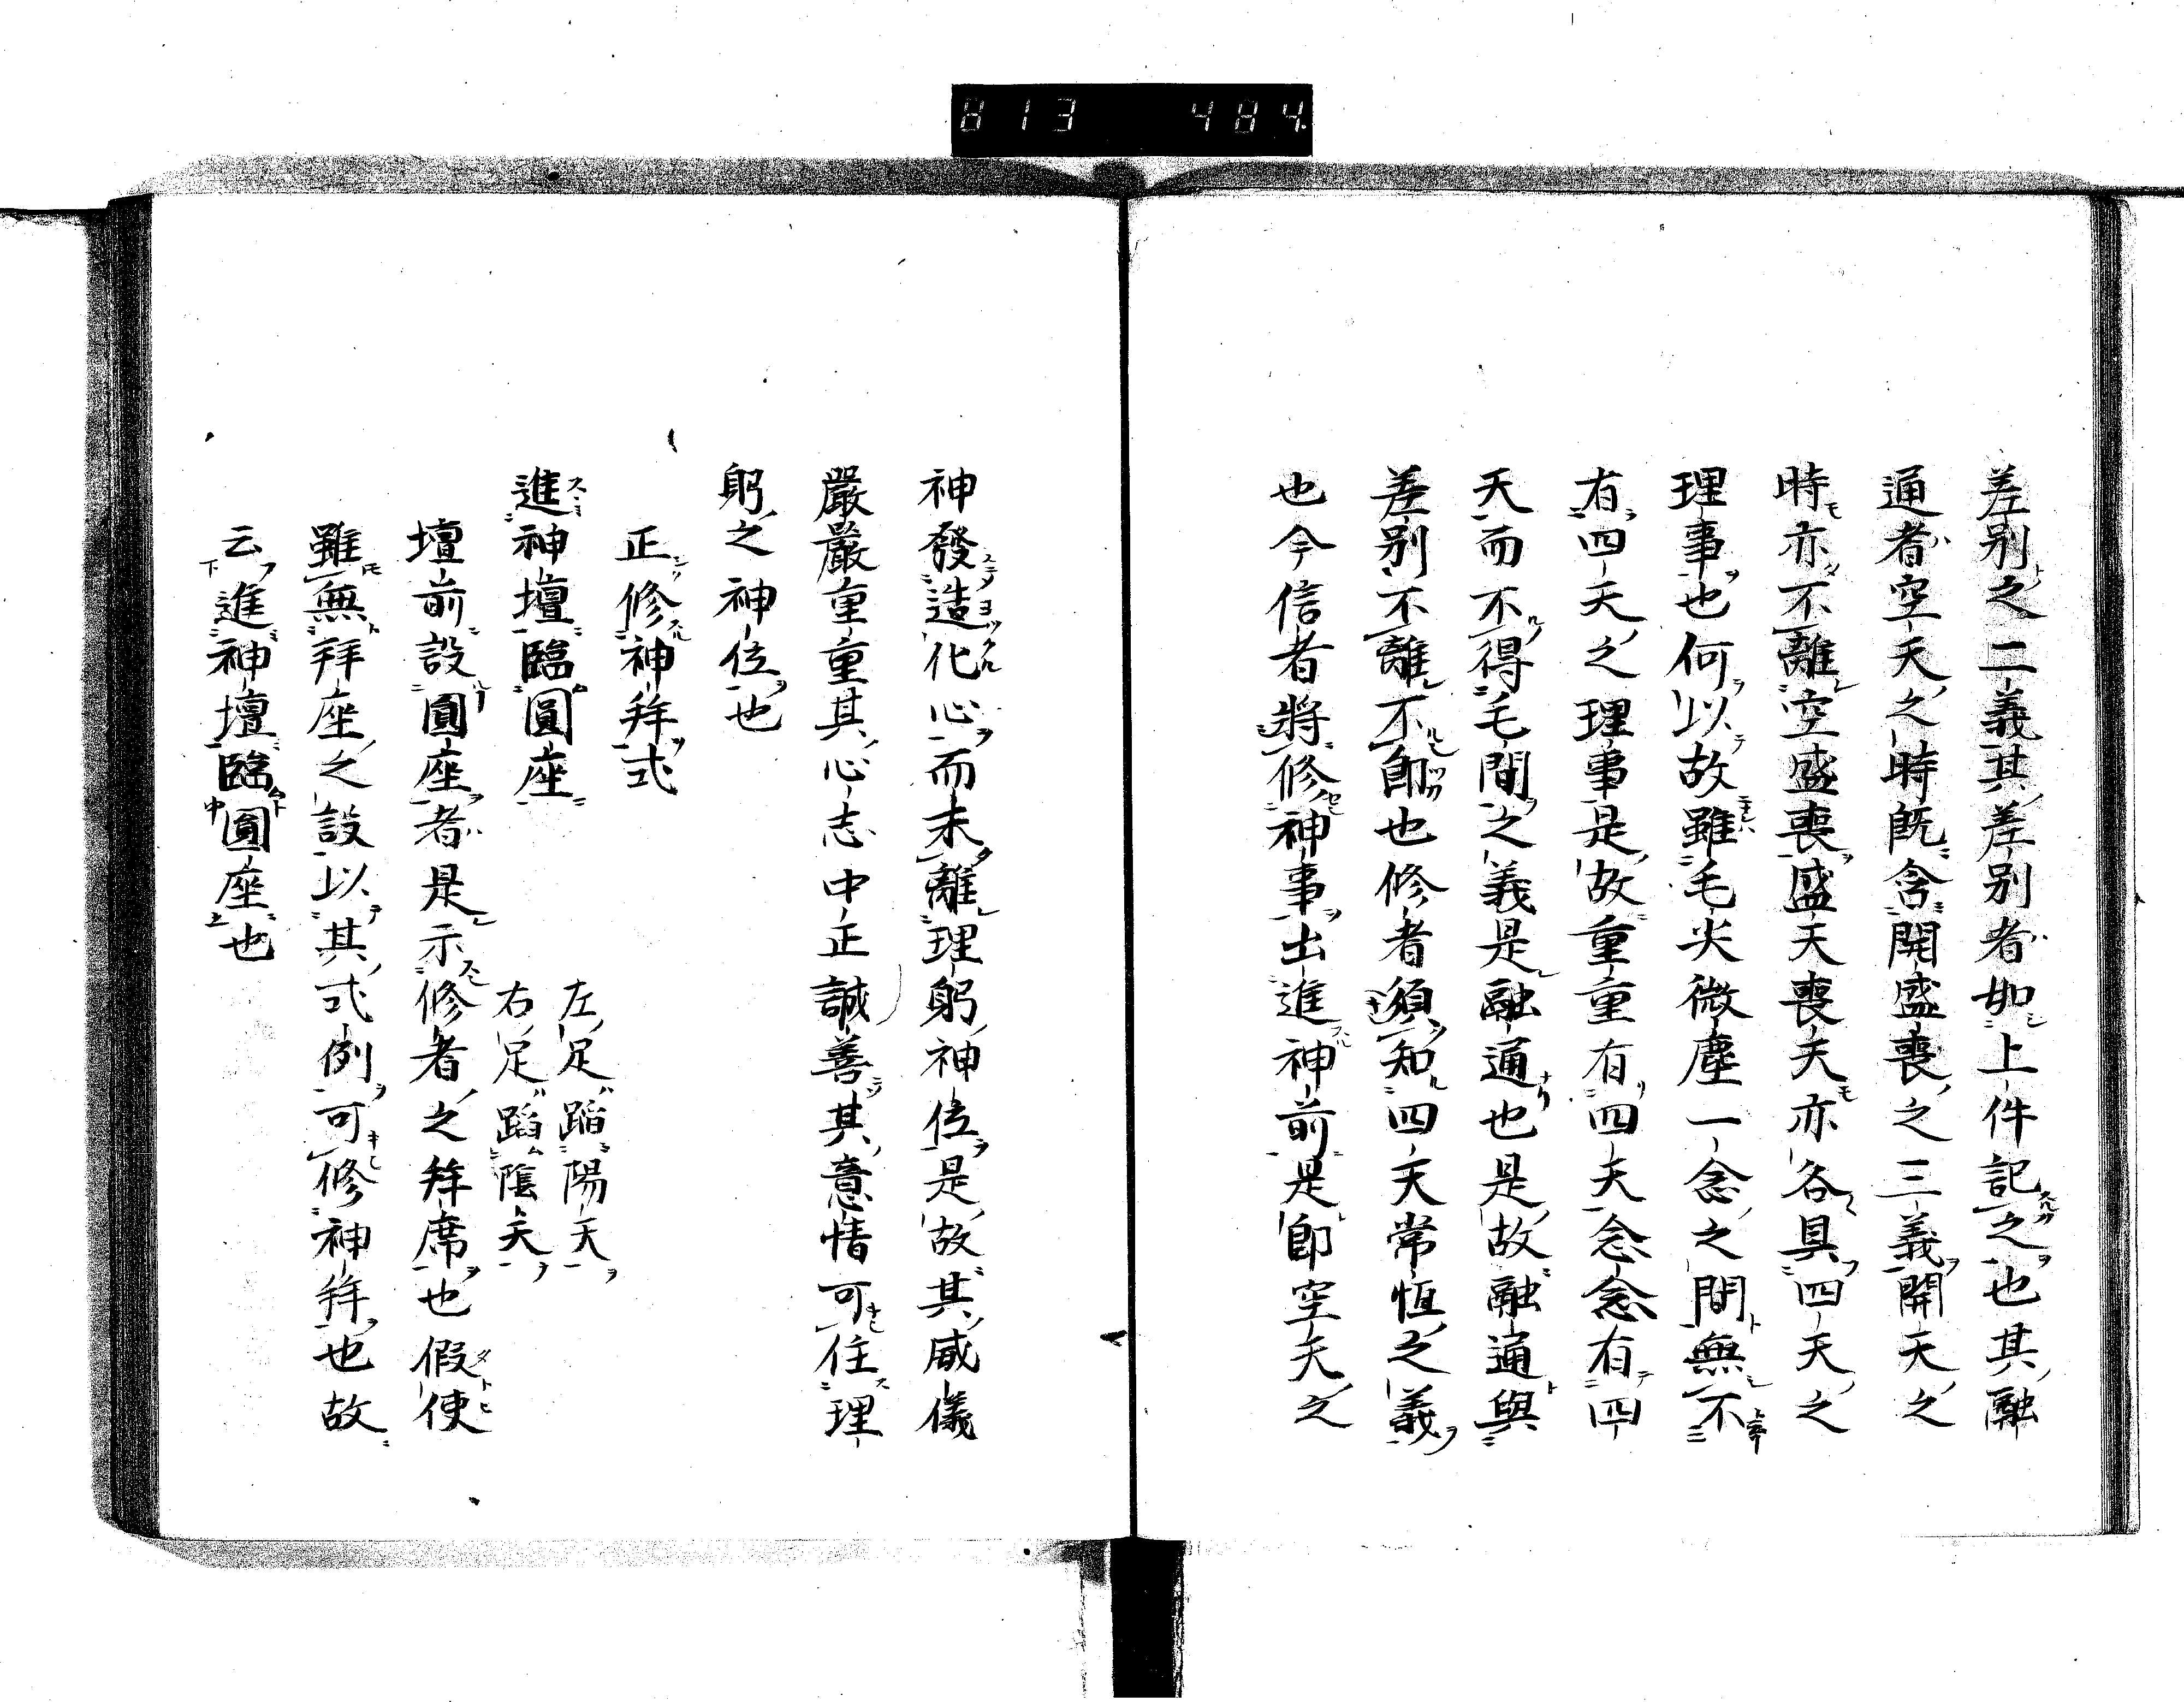 813 484
差別之二義其差別者如上件記之也其融
通者空天之時既含開盛喪之三義開天之
時亦不離空盛喪盛天喪天亦各具四天之
理事也何以故雖毛尖微塵一念之間無不
有四天之理事是故重重有四天念念有四
天而不得毛間之義是融通也是故融通與
差別不離不即也修者須知四天常恒之義
也今信者將修神事出進神前是即空天之
神發造化心而未離理躬神位是故其威儀
嚴嚴重重其心志中正誠善其意情可住理
躬之神位也
正修神拜式
進神壇臨圓座
左足蹈陽天
右足蹈陰天
壇前設圓座者是示修者之拜席也假使
雖無拜座之設以其式例可修神拜也故
云進神壇臨圓座也